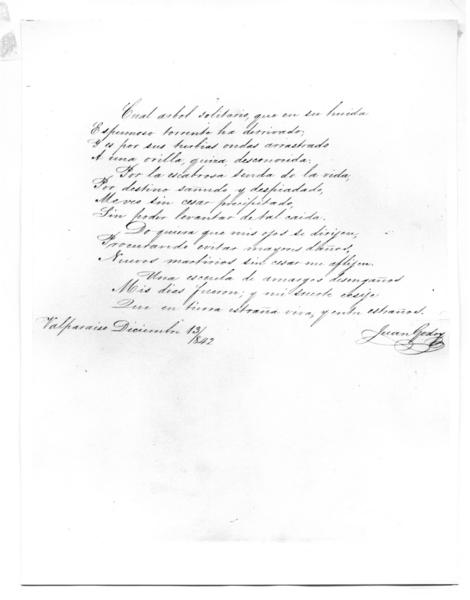 Cual arbol solitario, que en su huida
Espumoso torrente ha derrivado,
Y es por sus turbias ondas arrastrado
A una orilla, quiza, desconosida:
Por la escabrosa senda de la vida,
Por destino sañudo y despiadado,
Me veo sin cesar precipitado,
Sin poder levantar de tal caida.
Do quiera que mis ojos se dirijen,
Procurando evitar mayores daños,
Nuevos martirios sin cesar me aflijen.
Una escuela de amargos desengaños
Mis dias fueron, y mi suerte
Que en tierra estraña vivo, y entre estraños.
Valparaiso Diciembre 13/
1842
Juan Godoy